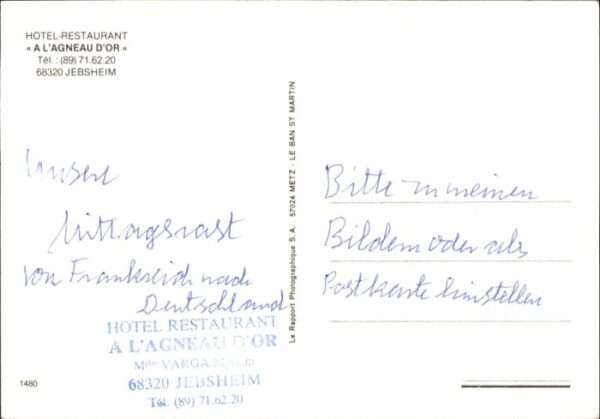 HOTEL-RESTAURANT
« A L'AGNEAU D'OR »
Tél. : (89) 71.62.20
68320 JEBSHEIM
Unsere
Mittagsrast
von Frankreich nach
Deutschland
HOTEL RESTAURANT
A L'AGNEAU D'OR
Mme VARGA
68320 JEBSHEIM
Tél. (89) 71.62.20
1480
Le Rapport Photographique S.A. 57024 METZ - LE BAN ST MARTIN
Bitte zu meinen
Bildern oder als
Postkarte einstellen